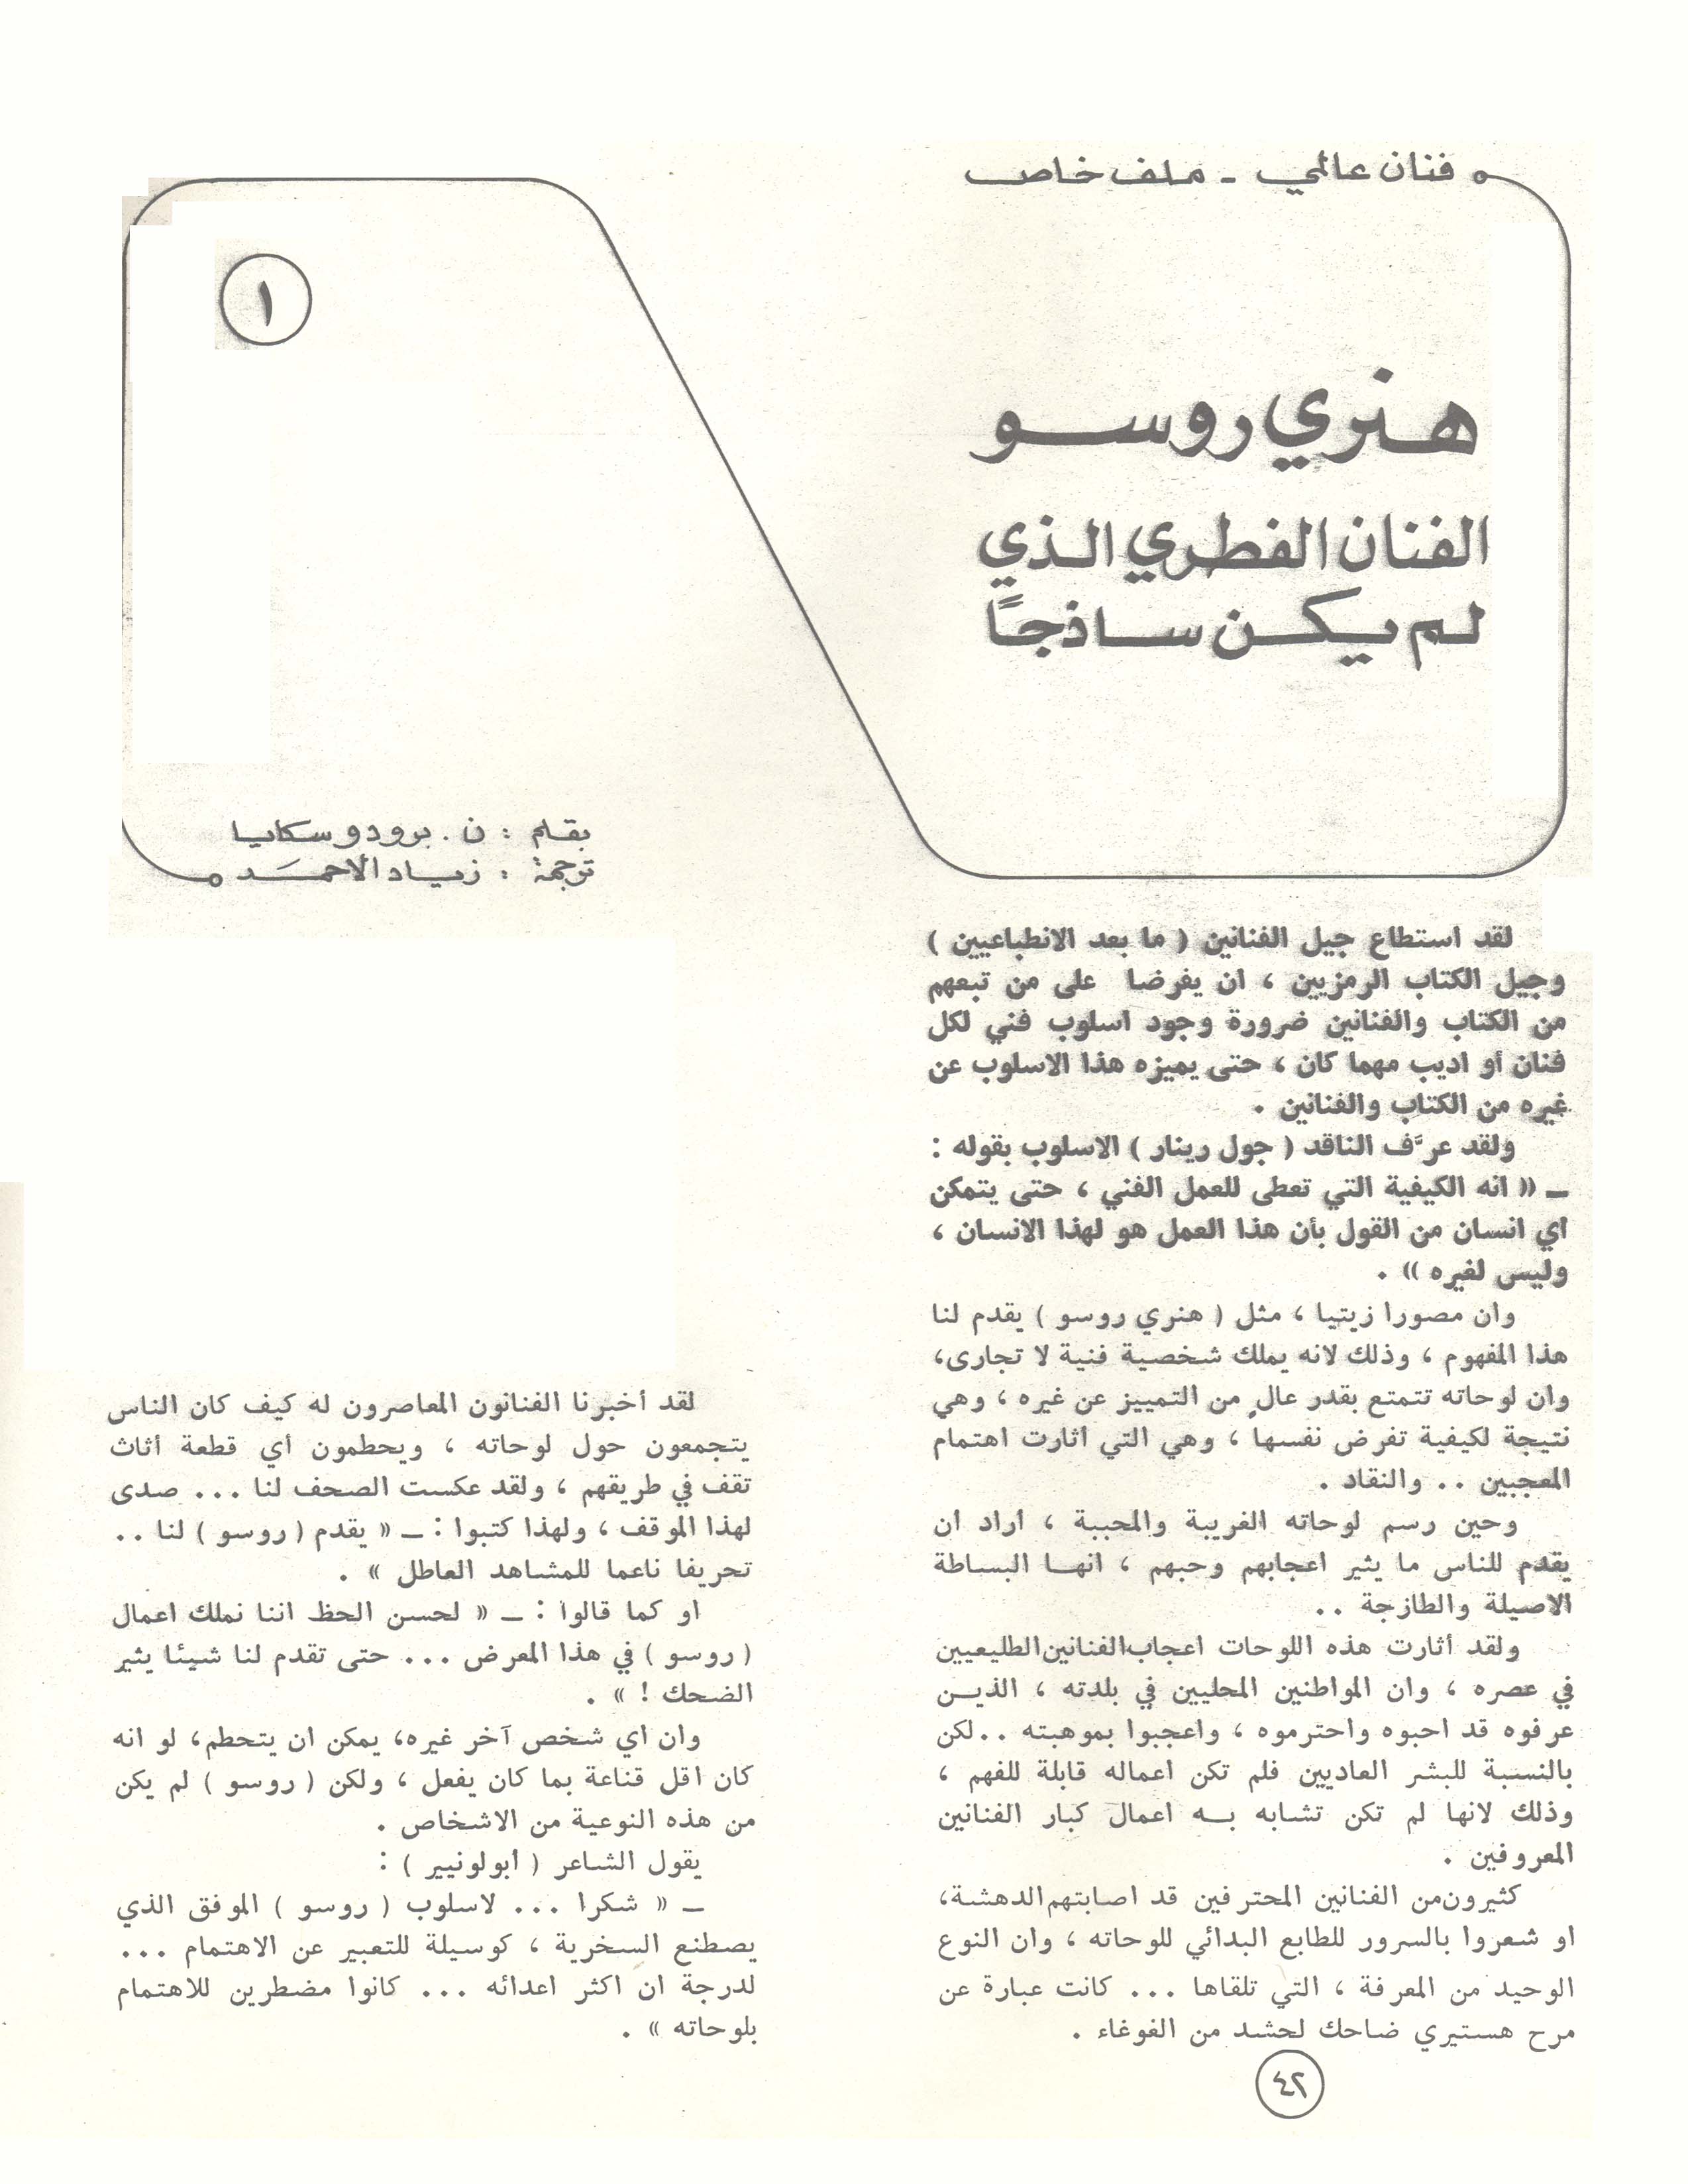 فنان عالمي - ملف خاص
١
هنري روسو
الفنان الفطري الذي
لم يكن ساذجًا
بقلم : ن . برودوسكايا
ترجمة : زياد الاحمد
لقد استطاع جيل الفنانين ( ما بعد الانطباعيين )
وجيل الكتاب الرمزيين ، ان يفرضا على من تبعهم
من الكتاب والفنانين ضرورة وجود اسلوب فني لكل
فنان أو اديب مهما كان ، حتى يميزه هذا الاسلوب عن
غيره من الكتاب والفنانين .
ولقد عرَّف الناقد ( جول رينار ) الاسلوب بقوله :
ــ « انه الكيفية التي تعطى للعمل الفني ، حتى يتمكن
اي انسان من القول بأن هذا العمل هو لهذا الانسان ،
وليس لغيره » .
وان مصورا زيتيا ، مثل ( هنري روسو ) يقدم لنا
هذا المفهوم ، وذلك لانه يملك شخصية فنية لا تجارى،
وان لوحاته تتمتع بقدر عالٍ من التمييز عن غيره ، وهي
نتيجة لكيفية تفرض نفسها ، وهي التي اثارت اهتمام
المعجبين .. والنقاد .
وحين رسم لوحاته الغريبة والمحببة ، اراد ان
يقدم للناس ما يثير اعجابهم وحبهم ، انهـا البساطة
الاصيلة والطازجة ..
ولقد أثارت هذه اللوحات اعجاب الفنانين الطليعيين
في عصره ، وان المواطنين المحليين في بلدته ، الذيـن
عرفوه قد احبوه واحترموه ، واعجبوا بموهبته .. لكن
بالنسبة للبشر العاديين فلم تكن اعماله قابلة للفهم ،
وذلك لانها لم تكن تشابه بـه اعمال كبار الفنانين
المعروفين .
كثيرون من الفنانين المحترفين قد اصابتهم الدهشة،
او شعروا بالسرور للطابع البدائي للوحاته ، وان النوع
الوحيد من المعرفة ، التي تلقاها ... كانت عبارة عن
مرح هستيري ضاحك لحشد من الغوغاء .
لقد أخبرنا الفنانون المعاصرون له كيف كان الناس
يتجمعون حول لوحاته ، ويحطمون أي قطعة أثاث
تقف في طريقهم ، ولقد عكست الصحف لنا ... صدى
لهذا الموقف ، ولهذا كتبوا : ــ « يقدم ( روسو ) لنا ..
تحريفا ناعما للمشاهد العاطل » .
او كما قالوا : ــ « لحسن الحظ اننا نملك اعمال
( روسو ) في هذا المعرض ... حتى تقدم لنا شيئا يثير
الضحك ! » .
وان اي شخص آخر غيره، يمكن ان يتحطم، لو انه
كان اقل قناعة بما كان يفعل ، ولكن ( روسو ) لم يكن
من هذه النوعية من الاشخاص .
يقول الشاعر ( أبولونيير ) :
ــ « شكرا ... لاسلوب ( روسو ) الموفق الذي
يصطنع السخرية ، كوسيلة للتعبير عن الاهتمام ...
لدرجة ان اكثر اعدائه ... كانوا مضطرين للاهتمام
بلوحاته » .
٤٢